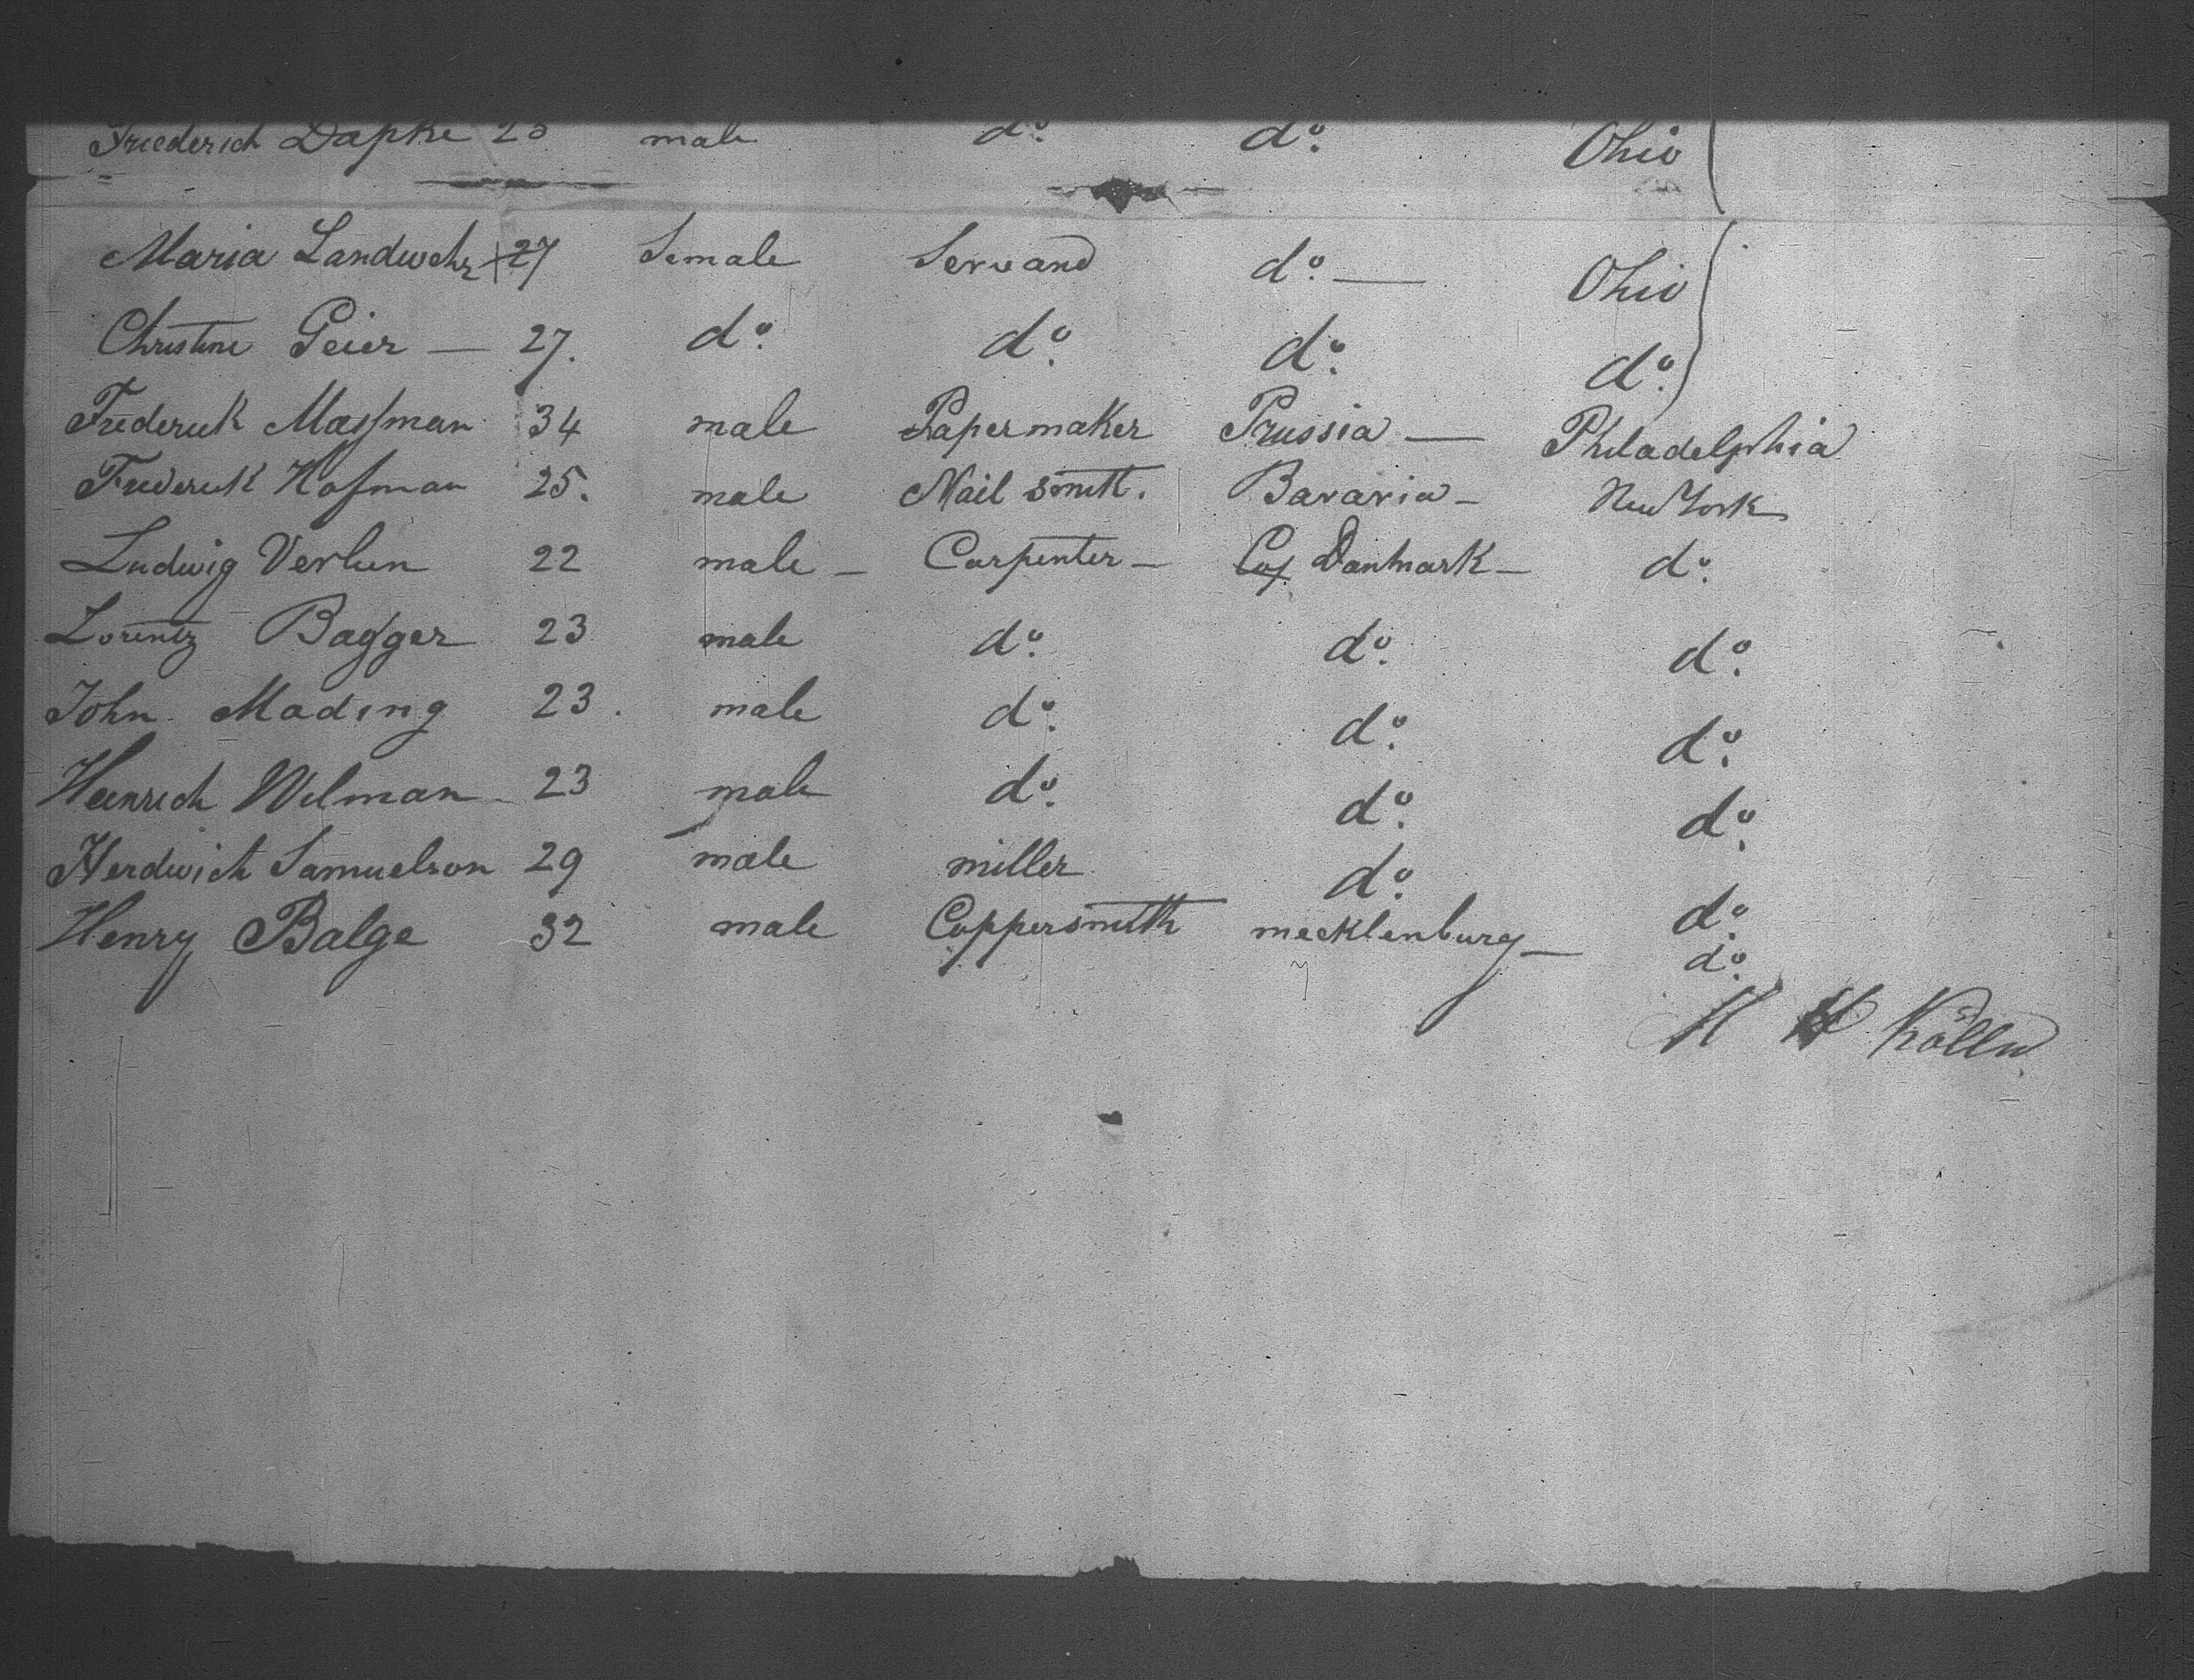 Friederich Dapke 23 male do. do. Ohio
Maria Landwehr 27 Female Servand do. — Ohio
Christine Geier — 27. do. do. do. do.
Frederick Massman 34 male Papermaker Prussia — Philadelphia
Frederick Hofman 25. male Nail smith. Bavaria — New York
Ludwig Verlun 22 male — Carpenter — Danmark — do.
Lorentz Bagger 23 male do. do. do.
John Mading 23. male do. do. do.
Heinrich Wilman 23 male do. do. do.
Herdwich Samuelson 29 male miller do. do.
Henry Balge 32 male Coppersmith mecklenburg — do.